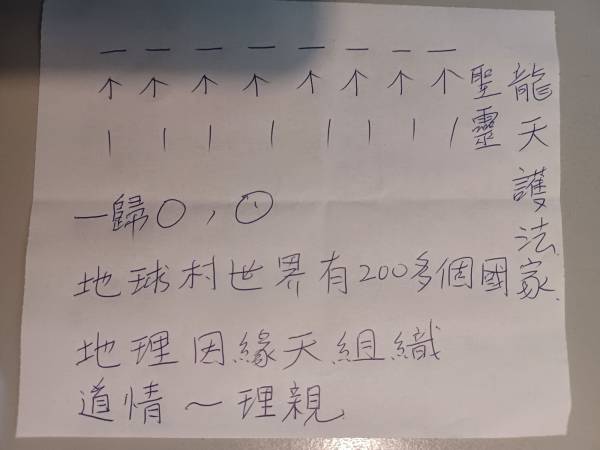 一 一 一 一 一 一 一 一
↑ ↑ ↑ ↑ ↑ ↑ ↑ ↑
| | | | | | | |
聖靈
龍天護法
一歸○,☉
地球村世界有200多個國家.
地理因緣天組織
道情～理親